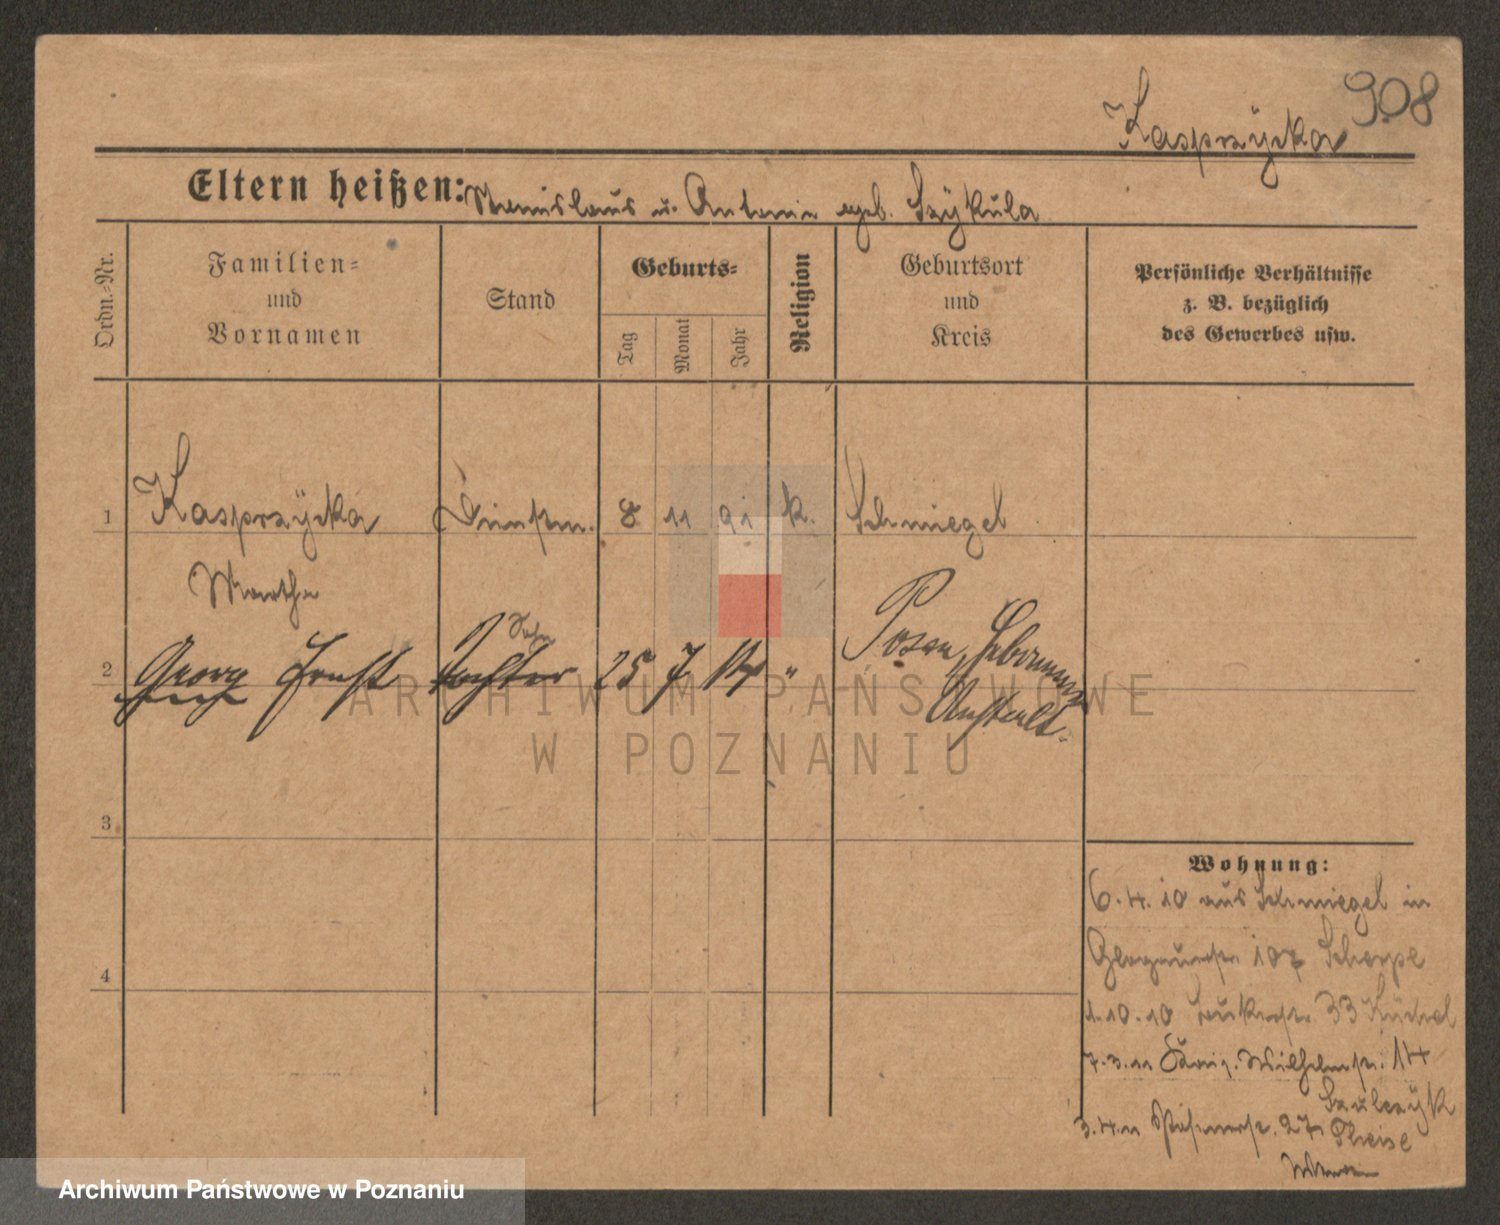 908
Kasprzÿcka
Eltern heißen: Stanislaus u. Antonie geb. Szÿkula
Ordn.-Nr.
Familien-
und
Vornamen
Stand
Geburts-
Tag
Monat
Jahr
Religion
Geburtsort
und
Kreis
Persönliche Verhältnisse
z. B. bezüglich
des Gewerbes usw.
1 Kasprzÿcka 8 11 91 k. Schmiegel
Martha
Sohn
2 Georg Ernst Tochter 25 7 14 " Posen, Hebammen
Anstalt.
3
4
Wohnung:
6.4.10 aus Schmiegel in
Glogauerstr. 107
1.10.10 33
7.3.11 Wilhelmstr. 14
Szulczÿk
3.4.11 27
ARCHIWUM PAŃSTWOWE
W POZNANIU
Archiwum Państwowe w Poznaniu